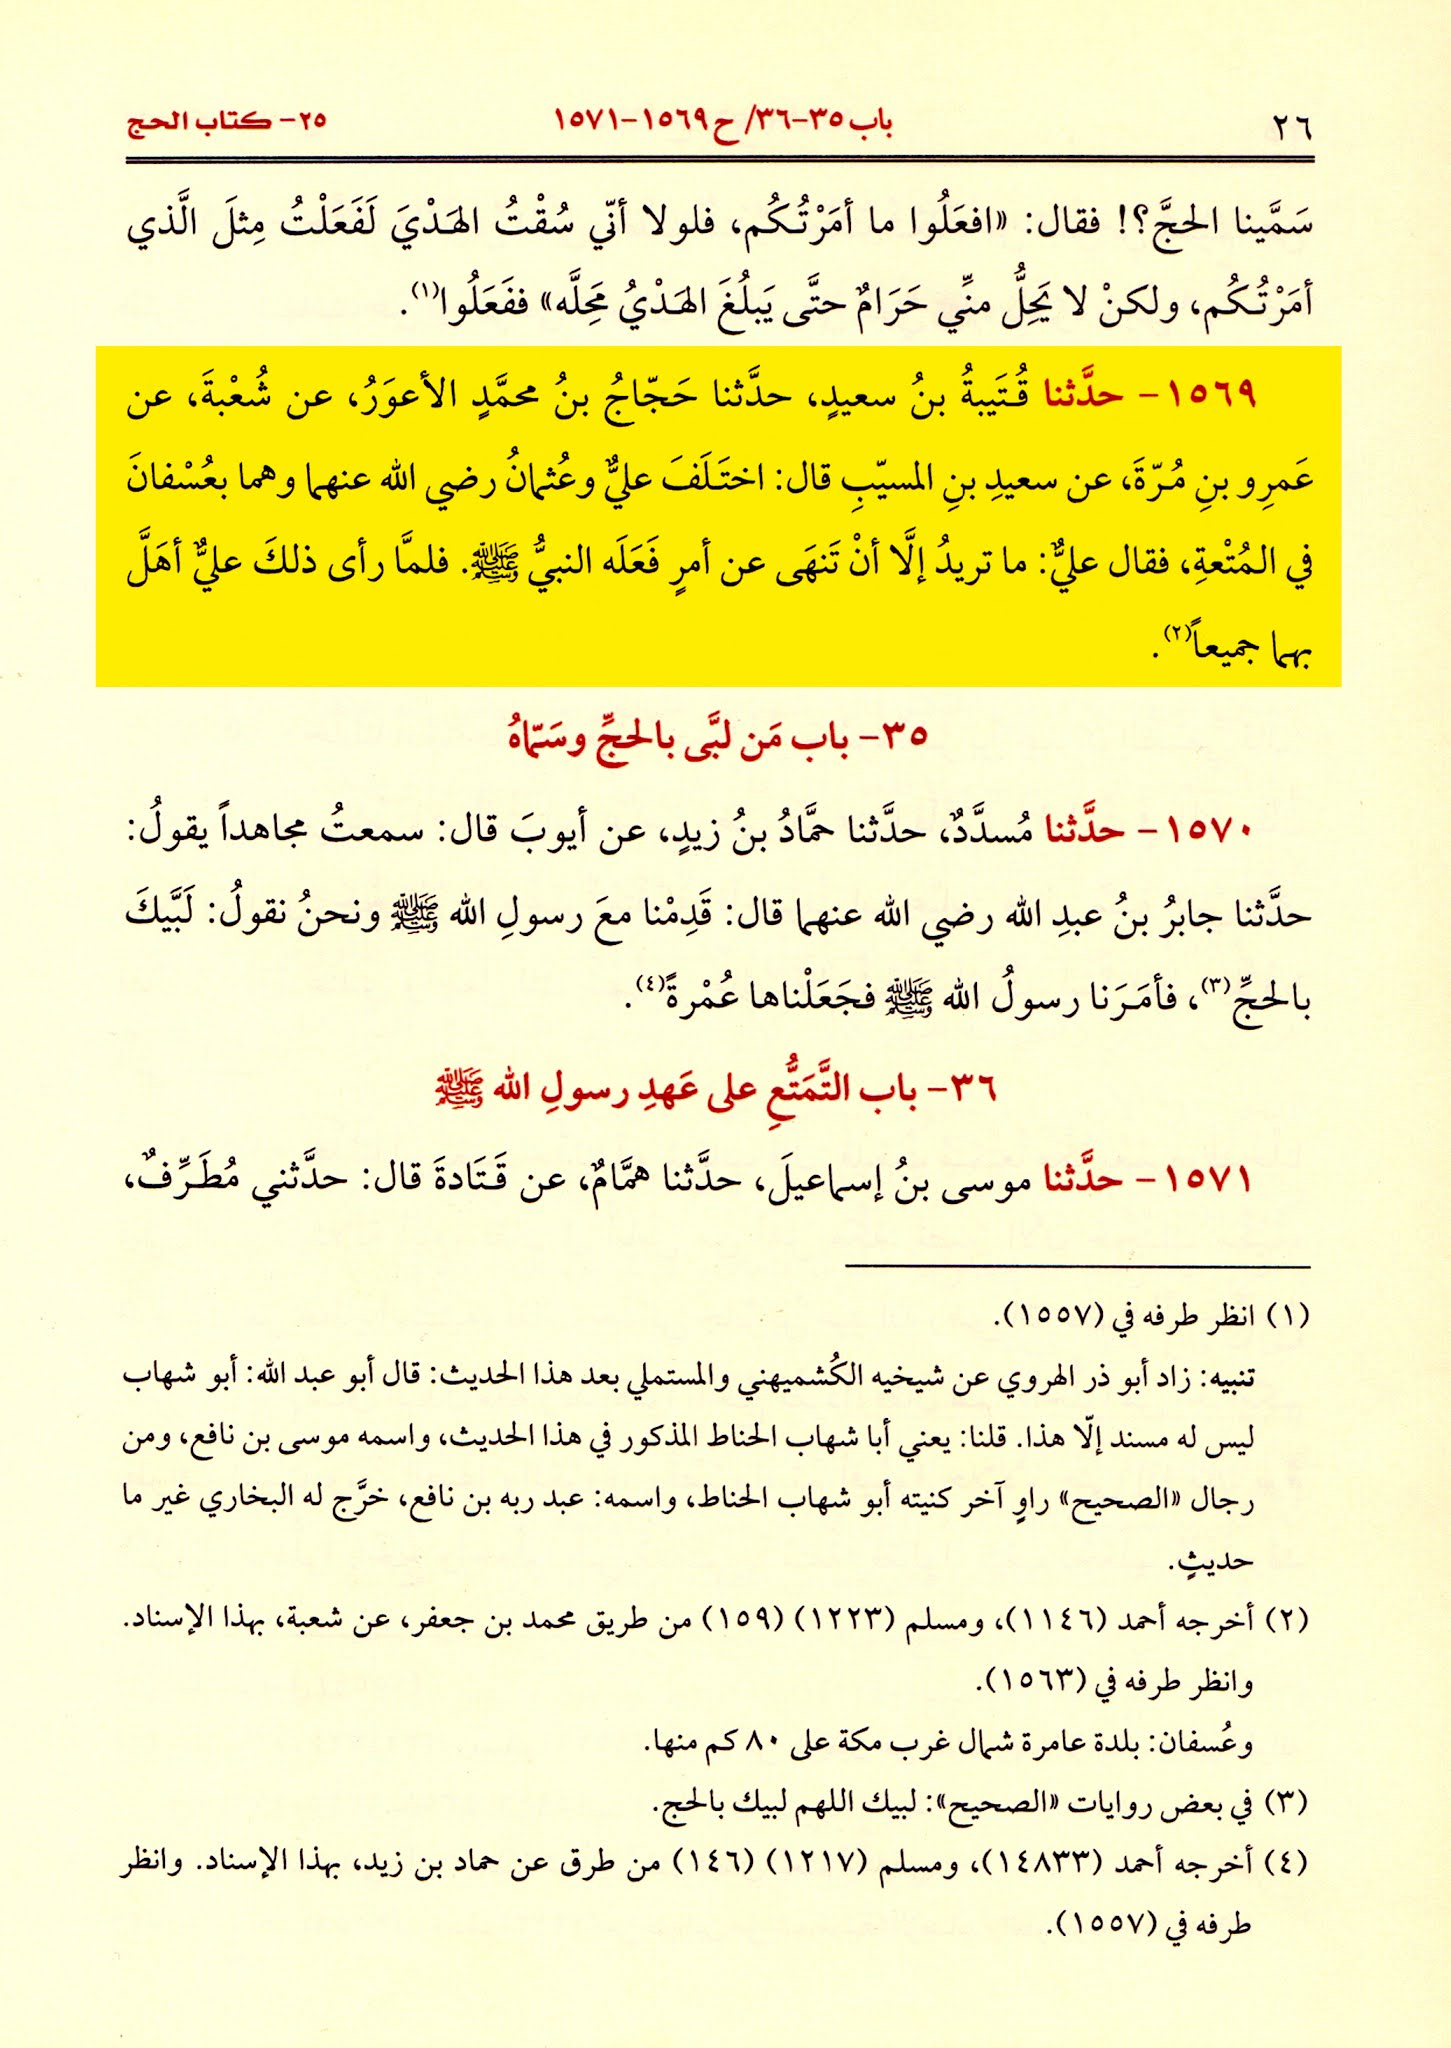 ٢٦ باب ٣٥-٣٦/ ح ١٥٦٩-١٥٧١ ٢٥- كتاب الحج
سَمَّينا الحجَّ؟! فقال: «افعَلُوا ما أمَرْتُكُم، فلولا أنّي سُقْتُ الهَدْيَ لَفَعَلْتُ مِثلَ الَّذي
أمَرْتُكُم، ولكنْ لا يَحِلُّ منِّي حَرَامٌ حتَّى يَبلُغَ الهَدْيُ مَحِلَّه» ففَعَلُوا(١).
١٥٦٩- حدَّثنا قُتَيبةُ بنُ سعيدٍ، حدَّثنا حَجّاجُ بنُ محمَّدٍ الأعوَرُ، عن شُعْبةَ، عن
عَمرِو بنِ مُرّةَ، عن سعيدِ بنِ المسيّبِ قال: اختَلَفَ عليٌّ وعُثمانُ رضي الله عنهما وهما بعُسْفانَ
في المُتْعةِ، فقال عليٌّ: ما تريدُ إلَّا أنْ تَنهَى عن أمرٍ فَعَلَه النبيُّ ﷺ. فلمَّا رأى ذلكَ عليٌّ أهَلَّ
بهما جميعاً(٢).
٣٥- باب مَن لبَّى بالحجِّ وسَمّاهُ
١٥٧٠- حدَّثنا مُسدَّدٌ، حدَّثنا حمَّادُ بنُ زيدٍ، عن أيوبَ قال: سمعتُ مجاهداً يقولُ:
حدَّثنا جابرُ بنُ عبدِ الله رضي الله عنهما قال: قَدِمْنا معَ رسولِ الله ﷺ ونحنُ نقولُ: لَبَّيكَ
بالحجِّ(٣)، فأمَرَنا رسولُ الله ﷺ فجَعَلْناها عُمْرةً(٤).
٣٦- باب التَّمَتُّعِ على عَهدِ رسولِ الله ﷺ
١٥٧١- حدَّثنا موسى بنُ إسماعيلَ، حدَّثنا همَّامٌ، عن قَتَادةَ قال: حدَّثني مُطَرِّفٌ،
(١) انظر طرفه في (١٥٥٧).
تنبيه: زاد أبو ذر الهروي عن شيخيه الكُشميهني والمستملي بعد هذا الحديث: قال أبو عبد الله: أبو شهاب
ليس له مسند إلّا هذا. قلنا: يعني أبا شهاب الحناط المذكور في هذا الحديث، واسمه موسى بن نافع، ومن
رجال «الصحيح» راوٍ آخر كنيته أبو شهاب الحناط، واسمه: عبد ربه بن نافع، خرَّج له البخاري غير ما
حديثٍ.
(٢) أخرجه أحمد (١١٤٦)، ومسلم (١٢٢٣) (١٥٩) من طريق محمد بن جعفر، عن شعبة، بهذا الإسناد.
وانظر طرفه في (١٥٦٣).
وعُسفان: بلدة عامرة شمال غرب مكة على ٨٠ كم منها.
(٣) في بعض روايات «الصحيح»: لبيك اللهم لبيك بالحج.
(٤) أخرجه أحمد (١٤٨٣٣)، ومسلم (١٢١٧) (١٤٦) من طرق عن حماد بن زيد، بهذا الإسناد. وانظر
طرفه في (١٥٥٧).